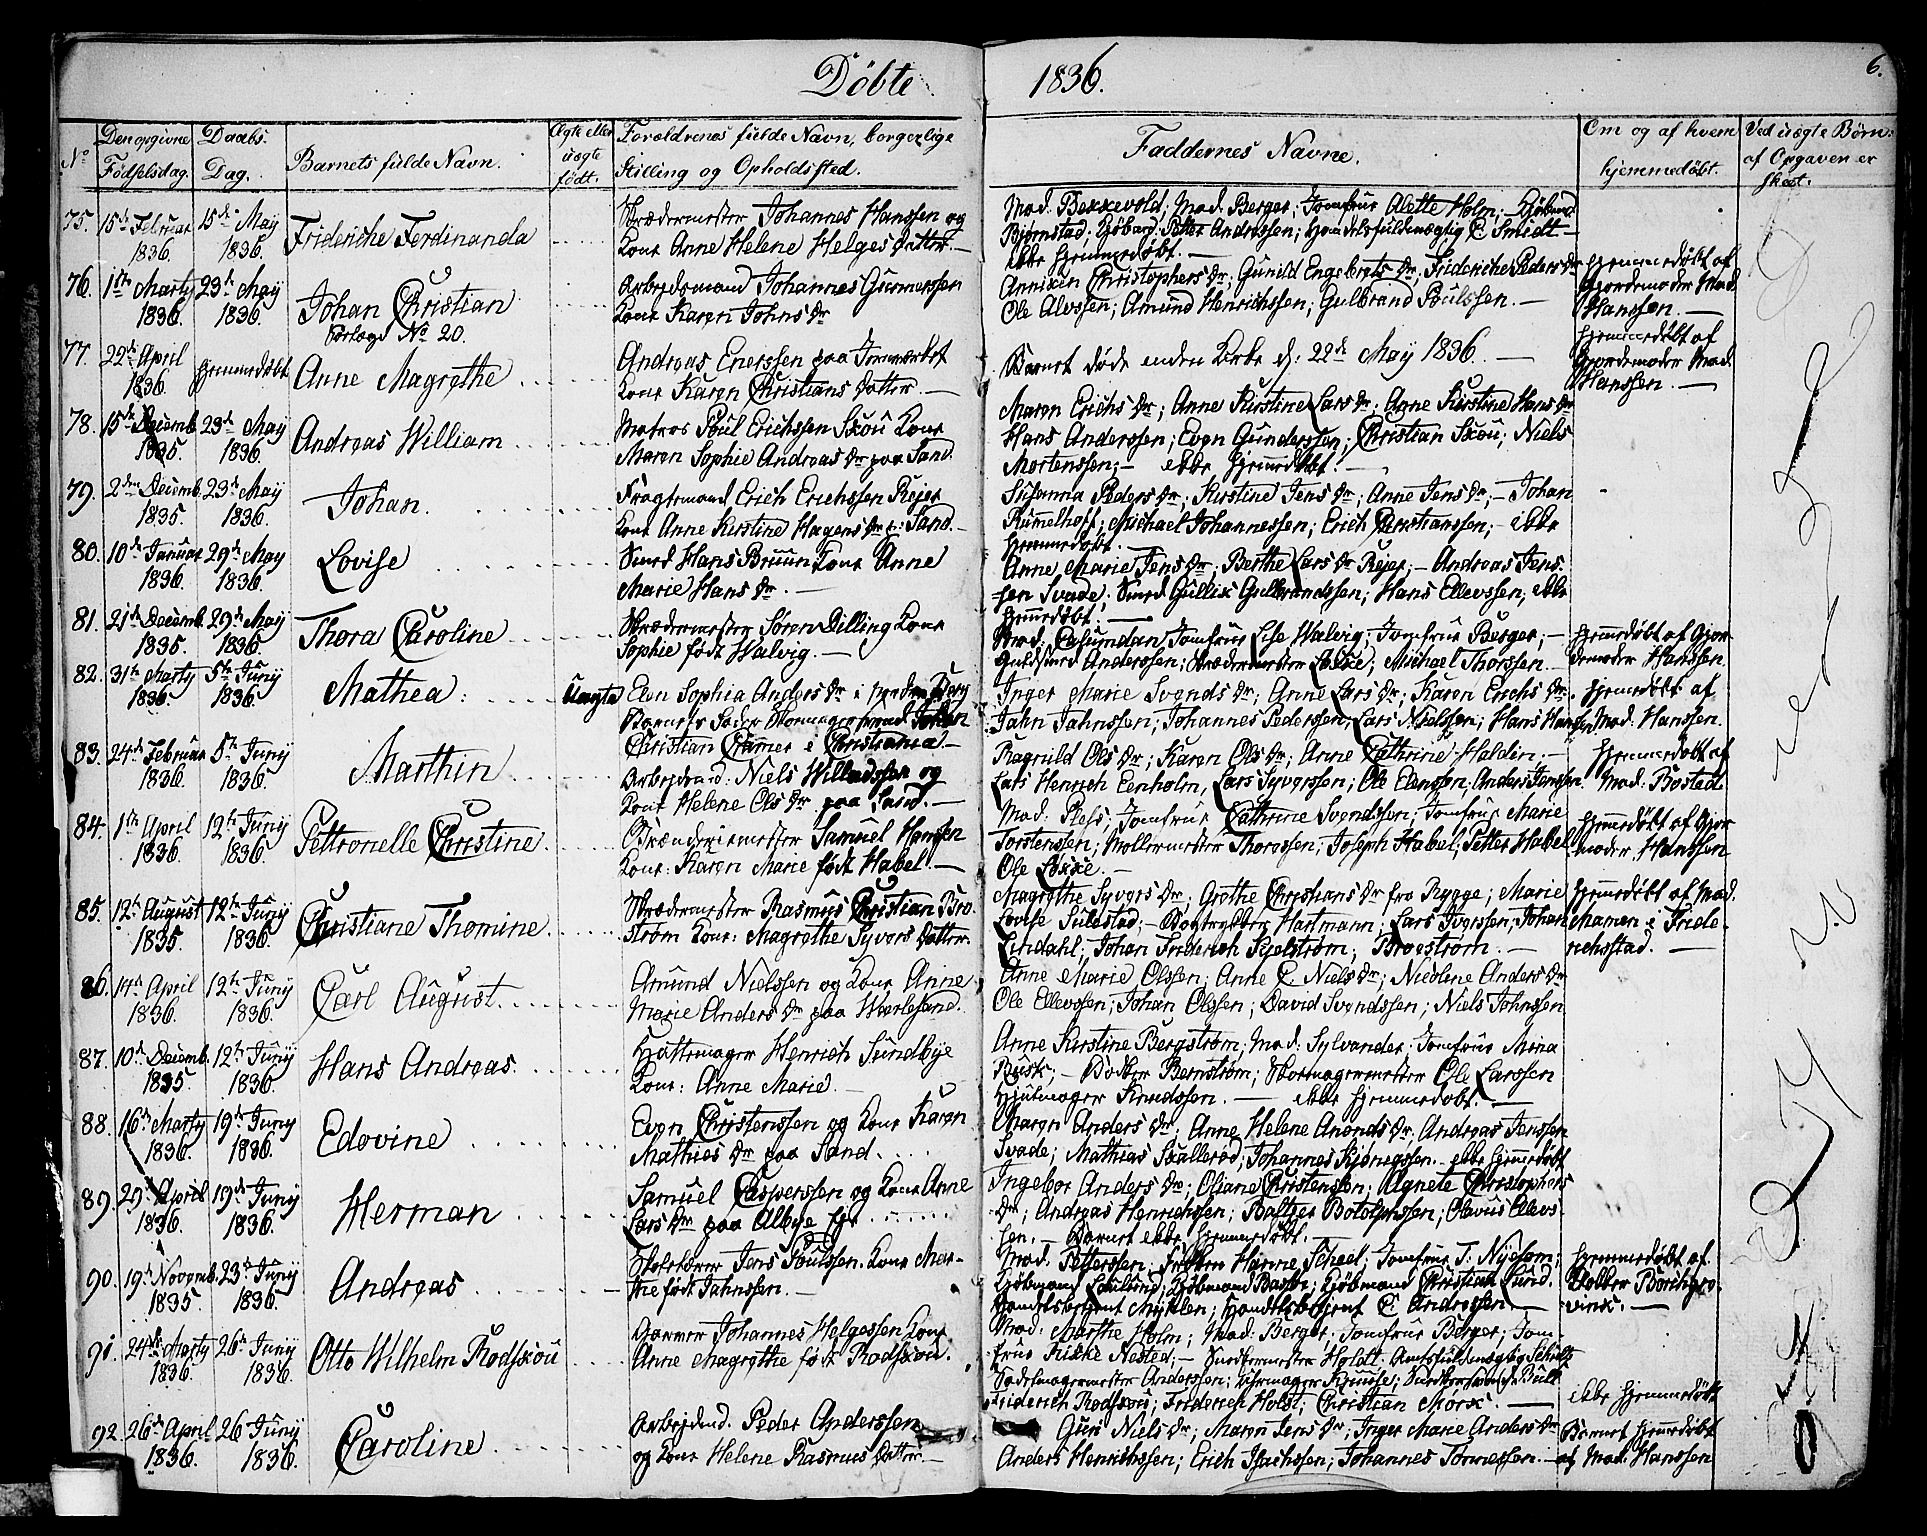 Döbte 1836. 6.
No Den opgivne Födselsdag. Daabs Dag. Barnets fulde Navn. Ægte eller uægte födt. Forældrenes fulde Navn, borgerlige Stilling og Opholdssted. Faddernes Navne. Om og af hvem hjemmedöbt. Ved uægte Börn: af Opgaven er skeet.
75. 15de Februar 1836. 15de May 1836. Frideriche Ferdinanda
Skrædermester Johannes Hanssen og
Kone Anne Helene Helges Datter. —
Mad. Bekkevold; Mad. Berger; Jomfrue Alette Holm; Kjöbmd
Björnstad; Kjöbmd: Petter Andressen; Handelsfuldmægtig C. Smidt —
ikke hjemmedöbt. —
76. 1ste Marty 1836. 23de May 1836. Johan Christian
Arbejdsmand Johannes Gunnerssen
Kone Karen Johns Dr
Annixen Christophers Dr; Gunild Engebrets Dr; Frideriche Peders Dr
Ole Alvssen; Amund Henrichssen; Gulbrand Poulssen. —
Hjemmedöbt af
Gjordemoder Mad.
Hanssen. —
77. 22de April 1836. hjemmedöbt Forlagd No 20. Anne Magrethe
Andreas Enerssen paa Jernværket
Kone Karen Christians Datter. —
Barnet döde uden Kirke d: 22de May 1836. —
Hjemmedöbt af
Gjordemoder Mad.
Hanssen. —
78. 15de Decemb. 1835. 23de May 1836 Andreas William
Matros Poul Erichssen Skou Kone
Maren Sophie Andreas Dr paa Sand.
Maren Erichs Dr; Anne Kirstine Lars Dr; Anne Kirstine Hans Dr
Hans Anderssen; Even Gunderssen; Christian Skou; Niels
Mortenssen; — ikke hjemmedöbt. —
79. 2den Decemb. 1835. 23de May 1836. Johan.
Fragtemand Erich Erichssen Rejer
Kone Anne Kirstine Hagens Dr p: Sand. —
Susanna Peders Dr; Kirstine Jens Dr; Anne Jens Dr; — Johan
Rummelhoff; Michael Johannessen; Erich Christianssen; — ikke
hjemmedöbt.
80. 10de Januar 1836. 29de May 1836. Lovise
Smed Hans Bruun Kone Anne
Marie Hans Dr. —
Anne Marie Jens Dr; Berthe Lars Dr Rejer; — Andreas Jens-
sen Svade; Smed Gullix Gulbrandssen; Hans Ellevssen; ikke
hjemmedöbt. —
81. 21de Decemb. 1835. 29de May 1836. Thora Caroline
Skrædermester Sören Dilling Kone
Sophie född Walvig. —
Mad: Jomfrue Lise Walvig; Jomfrue Berger; —
Guldsmed Anderssen; Skrædermester Löxxe; Michael Thorssen. —
hjemmedöbt af Gjor-
demoder Hanssen.
82. 31te Marty 1836. 5te Juny 1836. Mathea: Uægte
Elen Sophia Anders Dr i
Barnets Fader Skomagersvend Johan
Christian Cramer i Christiania. —
Inger Marie Svends Dr; Anne Lars Dr; Karen Erichs Dr
Jahn Jahnssen; Johannes Pederssen; Lars Nielssen; Hans Hanssen
Hjemmedöbt af
Mad: Hanssen.
83. 24de Februar 1836. 5te Juny 1836. Marthin
Arbejdsmd: Niels Willadssen og
Kone Helene Ols Dr paa Sand. —
Ragnild Ols Dr; Karen Ols Dr; Anne Cathrine Haldin. —
Lars Henrich Eenholm, Lars Syverssen; Ole Elenssen; Anders Jenssen
Hjemmedöbt af
Mad: Bostad.
84. 1ste April 1836. 12te Juny 1836. Pettronelle Christine
Brænderiemester Samuel Hanssen
Kone: Karen Marie född Habel. —
Mad: Pless; Jomfrue Cathrine Svendssen; Jomfrue Marie
Torstenssen; Möllermester Thorossen; Joseph Habel; Petter Habel
Ole Löxxe. —
hjemmedöbt af Gjor-
moder Hanssen
85. 12te August 1835. 12te Juny 1836. Christiane Thomine
Skrædermester Rasmus Christian Bro-
ström Kone: Magrethe Syvers Datter.
Magrethe Syvers Dr; Grethe Christians Dr fra Rygge; Marie
Lovise Sulestad; — Bogtrykker Hartmann; Lars Iverssen; Johan
Lindahl; Johan Friderich Kjelström; Broeström. —
hjemmedöbt af Mad.
Maman i Fride-
richsstad. —
86. 14de April 1836. 12te Juny 1836. Carl August
Amund Nielssen og Kone Anne
Marie Anders Dr paa Værlesand.
Anne Marie Olssen; Anne C. Niels Dr; Nicoline Anders Dr
Ole Ellevssen; Johan Olssen; David Svendssen; Niels Johnssen
87. 10de Decemb. 1835 12te Juny 1836. Hans Andreas.
Hattemager Henrich Sundbye
Kone: Anne Marie. —
Anne Kirstine Bergström; Mad: Sylvander; Jomfrue Mina
Busk; — Bödker Bernström; Skomagermester Ole Larssen
Hjulmager Knudssen. — ikke hjemmedöbt. —
88. 16de Marty 1836. 19de Juny 1836. Edovine
Even Christenssen og Kone Karen
Mathies Dr paa Sand.
Maren Anders Dr; Anne Helene Amonds Dr; Andreas Jenssen
Svade; Mathias Skalleröd; Johannes ikke hjemmedöbt
89. 29de April 1836. 19de Juny 1836. Herman
Samuel Casperssen og Kone Anne
Lars Dr paa Albye Eje
Ingebor Anders Dr; Oliane Christenssen; Agnete Christophers
Dr; Andreas Henrichssen; Baltzer Botolphssen; Olavus Elevs-
sen. — Barnet ikke hjemmedöbt. —
90. 19de Novemb. 1835. 23de Juny 1836. Andreas
Jens Poulssen. Kone Mar-
the född Jahnssen. —
Mad. Petterssen; Fröken Hanne Scheel; Jomfrue T. Nyesom;
Kjöbmand Kjöbmand Kjöbmand Christian Lund.
Handelsbetjent Myklen; Handelsbetjent C: Andressen —
Hjemmedöbt af
91. 24de Marty 1836. 26de Juny 1836. Otto Wilhelm Rodsxou
Garver Johannes Helgessen Kone
Anne Magrethe född Rodsxou.
Mad: Marthe Holm; Mad: Berger; Jomfrue Berger; Jom-
frue Rikke Nested; — Holdt. Amtsfuldmægtig Schultz
Sadelmagermester Anderssen;
Friderich Rodsxou; Friderich Holst; Christian Mörx. —
ikke hjemmedöbt
92. 26de April 1836. 26 Juny 1836. Caroline
Arbejdsmd. Peder Anderssen
og Kone Helene Rasmus Datter —
Guri Niels Dr; Maren Jens Dr; Inger Marie Anders Dr
Anders Henrichssen; Erich Isachssen; Johannes Tönnessen. —
Barnet hjemmedöbt
af Mad. Hanssen